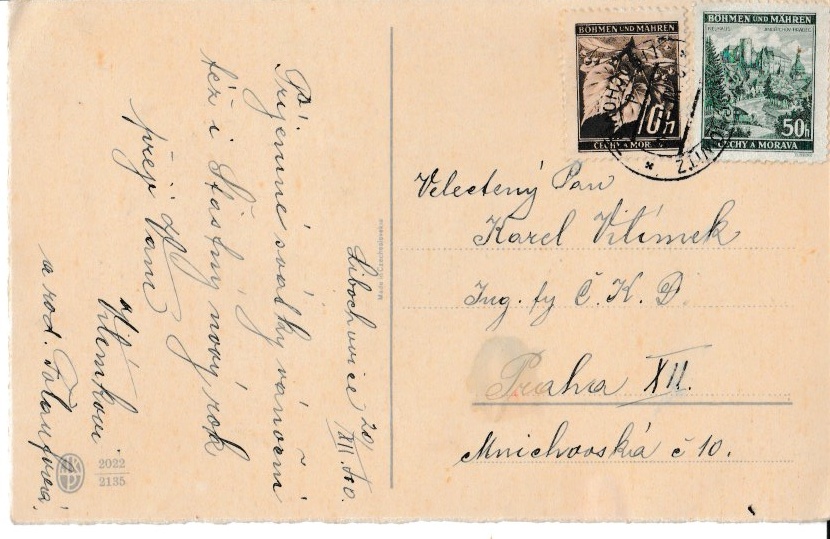 BÖHMEN UND MÄHREN
10h
ČECHY A MORAVA
BÖHMEN UND MÄHREN
50h
ČECHY A MORAVA
Velectený Pan
Karel Vitímek
Ing. fy Č. K. D.
Praha XII.
Mnichovská č 10.
Made in Czechoslovakia
Libochovice 20/XII. 40.
Příjemné svátky vánoční
též i Šťastný nový rok
přejí Vám
Vitímkovi
a rod.
2022
2135